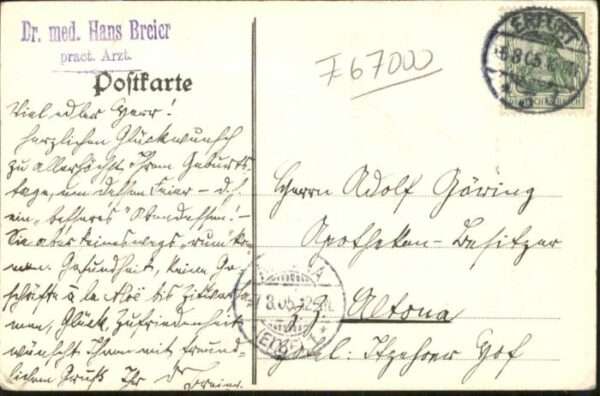 Dr. med. Hans Breier
pract. Arzt.
Postkarte
F67000
ERFURT
6.8.05.
Viel edler Herr!
Herzlichen Glückwunsch
zu allerhöchst Ihrem Geburts-
tage, um dessen Feier – d. h.
ein „besseres" Abendessen! –
Sie aber keineswegs „rum" kom-
men. Gesundheit, keine Ge-
schäfte à la Aloë bis
men, Glück, Zufriedenheit
wünscht Ihnen mit freund-
lichem Gruß Ihr Dr Breier.
Herrn Adolf Göring
Apotheken-Besitzer
z.Z. Altona
Hotel: Itzehoer Hof
ALTONA
8.05
(ELBE) 1